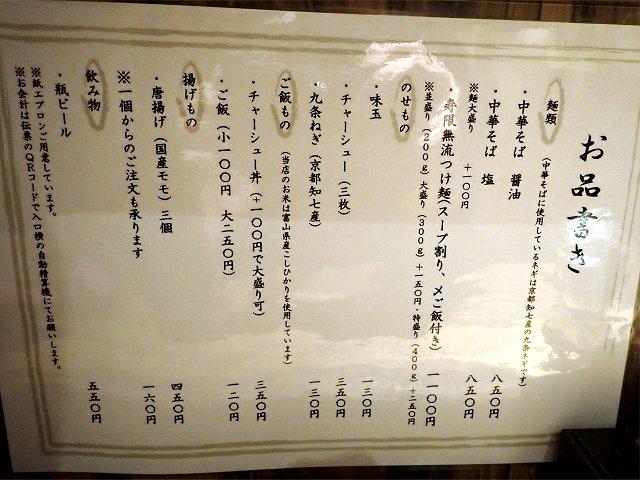 お品書き
麺類(中華そばに使用しているネギは京都知七産の九条ネギです)
・中華そば 醤油 八五〇円
・中華そば 塩 八五〇円
※麺大盛り +一〇〇円
限無流つけ麺(スープ割り、〆ご飯付き) 一一〇〇円
※並盛り(200g)大盛り(300g)+一五〇円・特盛り(400g)+二五〇円
のせもの
・味玉 一三〇円
・チャーシュー(三枚) 三五〇円
・九条ねぎ(京都知七産) 一三〇円
ご飯もの(当店のお米は富山県産こしひかりを使用しています)
・チャーシュー丼(+一〇〇円で大盛り可) 三五〇円
・ご飯(小一〇〇円 大二五〇円) 一二〇円
揚げもの
・唐揚げ(国産モモ)三個 四五〇円
※一個からのご注文も承ります 一六〇円
飲み物
・瓶ビール 五五〇円
※紙エプロンご用意しています。
※お会計は伝票のQRコードで入口横の自動精算機にてお願いします。